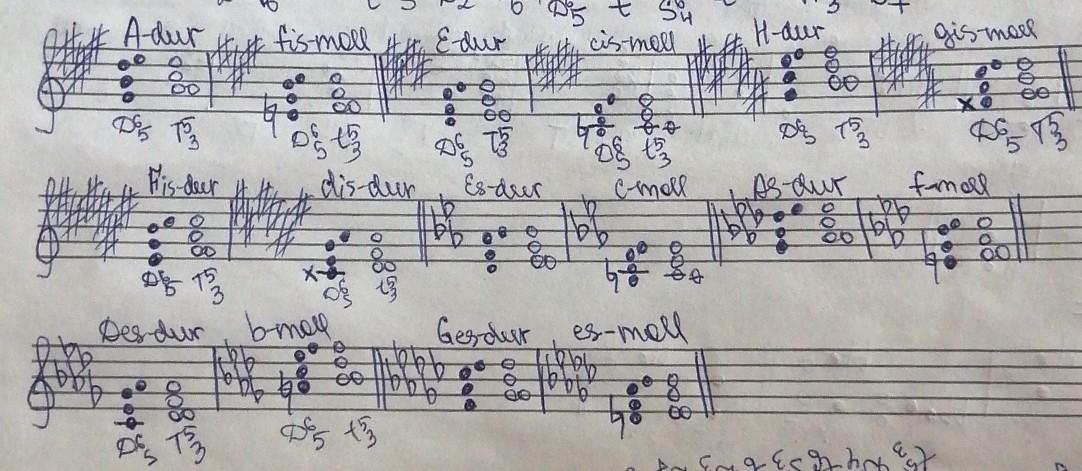 A-dur fis-moll E-dur cis-moll H-dur gis-moll
D6/5 T5/3 D6/5 t5/3 D6/5 T5/3 D6/5 t5/3 D6/5 T5/3 D6/5 T5/3
Fis-dur dis-dur Es-dur c-moll As-dur f-moll
D6/5 T5/3 D6/5 t5/3
Des-dur b-moll Ges-dur es-moll
D6/5 T5/3 D6/5 t5/3